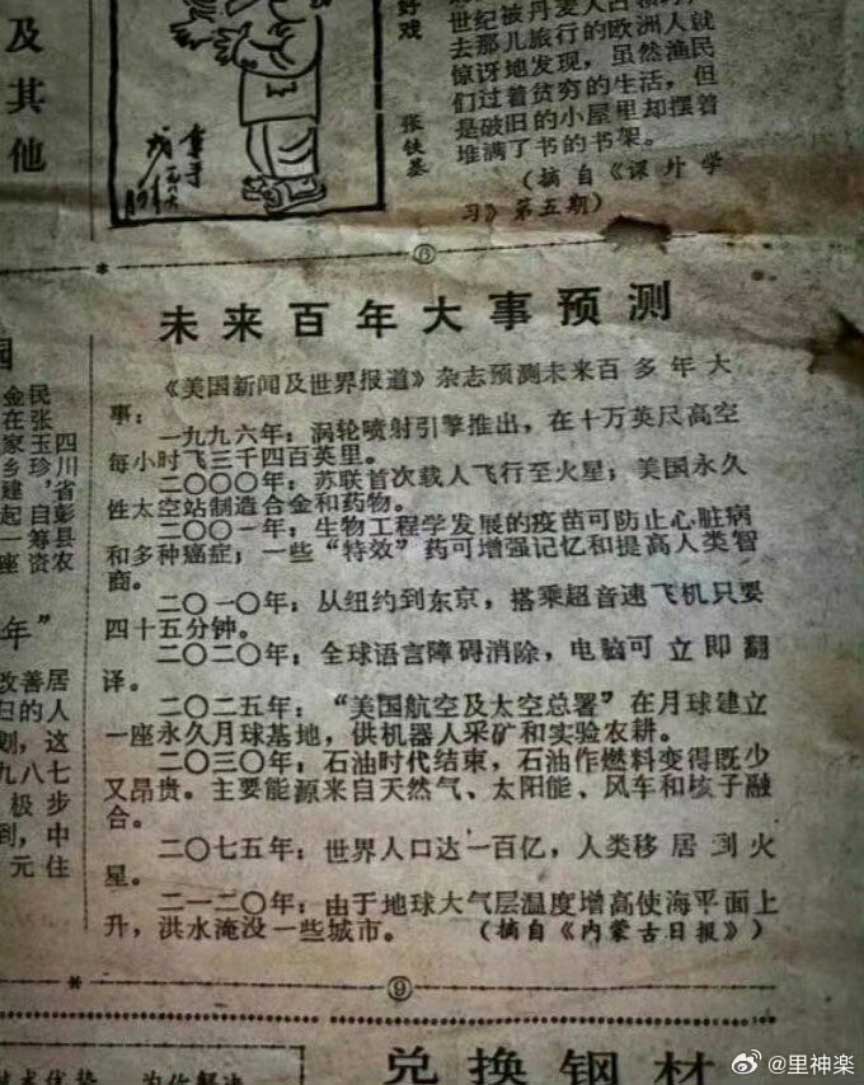 及其他
好戏
张铁基
去那儿旅行的欧洲人就
惊讶地发现，虽然渔民
们过着贫穷的生活，但
是破旧的小屋里却摆着
堆满了书的书架。
（摘自《课外学
习》第五期）
⑥
未来百年大事预测
《美国新闻及世界报道》杂志预测未来百多年大
事：
一九九六年：涡轮喷射引擎推出，在十万英尺高空
每小时飞三千四百英里。
二〇〇〇年：苏联首次载人飞行至火星；美国永久
性太空站制造合金和药物。
二〇〇一年：生物工程学发展的疫苗可防止心脏病
和多种癌症；一些“特效”药可增强记忆和提高人类智
商。
二〇一〇年：从纽约到东京，搭乘超音速飞机只要
四十五分钟。
二〇二〇年：全球语言障碍消除，电脑可立即翻
译。
二〇二五年：“美国航空及太空总署”在月球建立
一座永久月球基地，供机器人采矿和实验农耕。
二〇三〇年：石油时代结束，石油作燃料变得既少
又昂贵。主要能源来自天然气、太阳能、风车和核子融
合。
二〇七五年：世界人口达一百亿，人类移居到火
星。
二一二〇年：由于地球大气层温度增高使海平面上
升，洪水淹没一些城市。（摘自《内蒙古日报》）
四川省彭县农
民张玉珍，自筹资
金在家乡建起一座
年”
改善居
归的人
划，这
九八七
极步
到，中
元住
⑨
兑换钢材
@里神楽